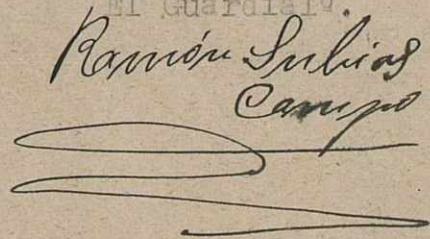 El Guardian.
Ramón Subias
Campo